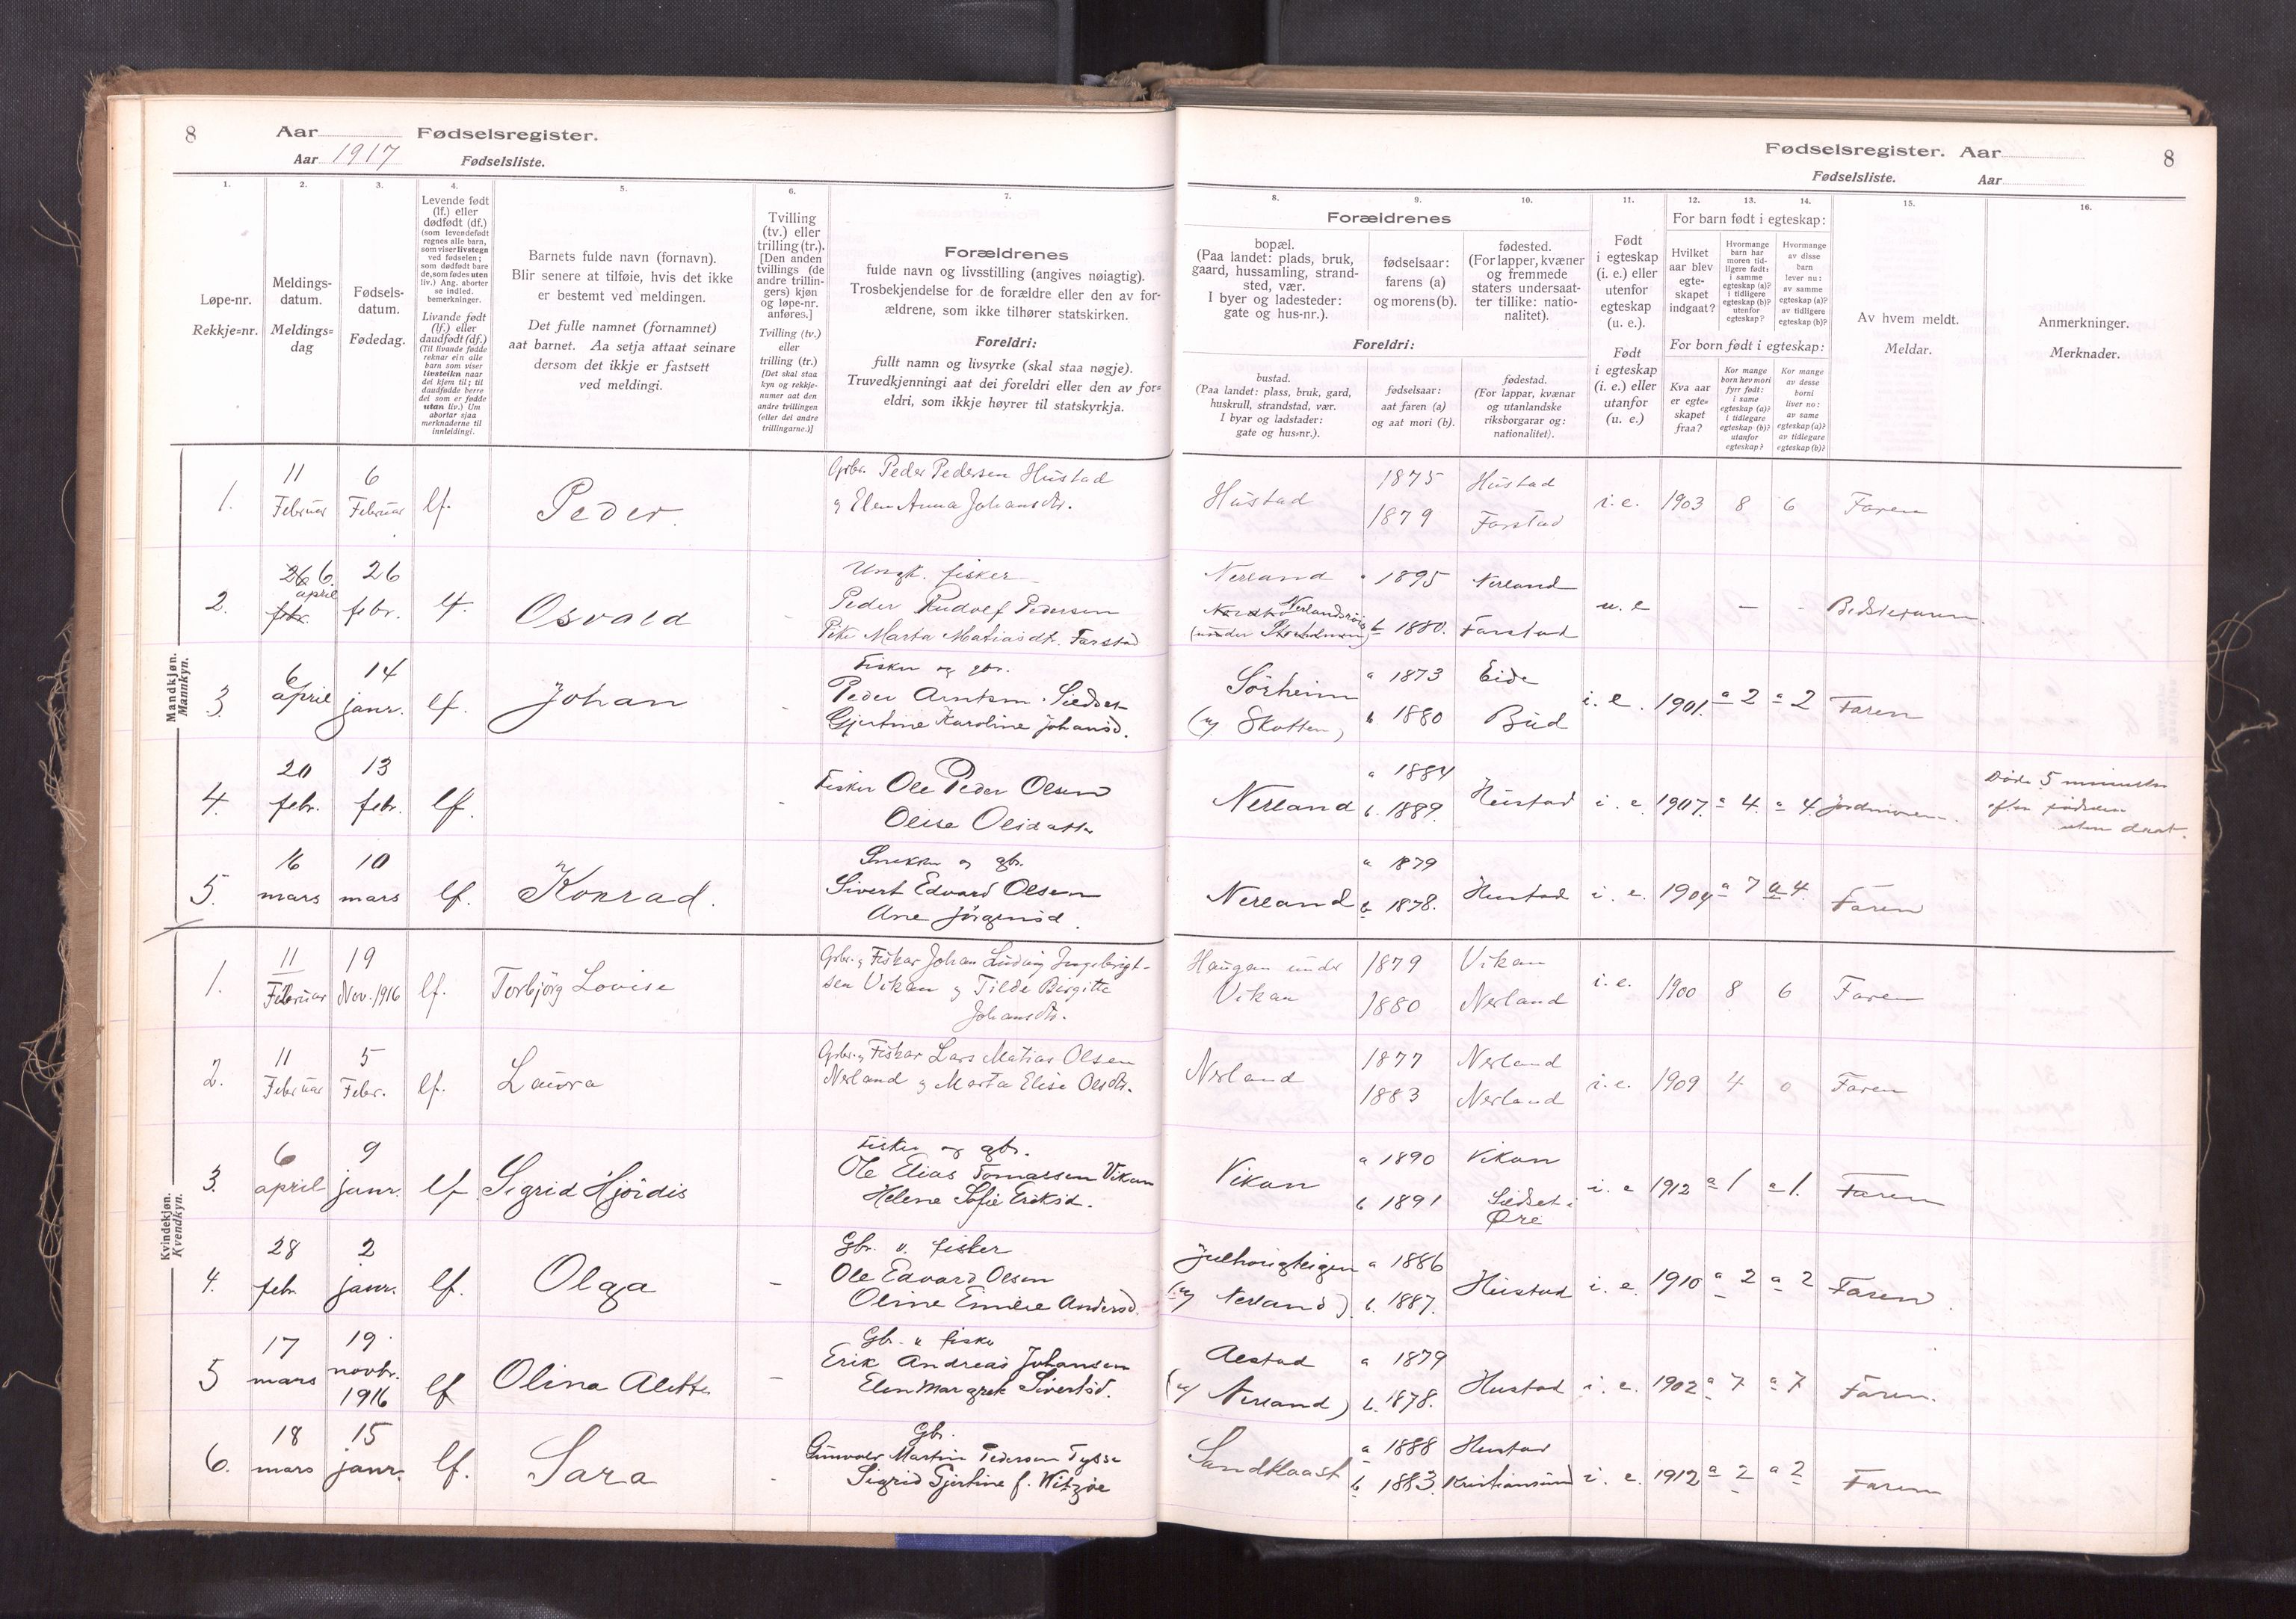 8
Aar
Fødselsregister.
Aar 1917
Fødselsliste.
1.
Løpe-nr.
Rekkje=nr.
2.
Meldings-
datum.
Meldings=
dag
3.
Fødsels-
datum.
Fødedag.
4.
Levende født
(lf.) eller
dødfødt (df.)
(som levendefødt
regnes alle barn,
som viser livstegn
ved fødselen;
som dødfødt bare
de, som fødes uten
liv.) Ang. aborter
se indled.
bemerkninger.
Livande født
(lf.) eller
daudfødt (df.)
(Til livande fødde
reknar ein alle
barn som viser
livsteikn naar
dei kjem til; til
daudfødde berre
dei som er fødde
utan liv.) Um
abortar sjaa
merknaderne til
innleidingi.
5.
Barnets fulde navn (fornavn).
Blir senere at tilføie, hvis det ikke
er bestemt ved meldingen.
Det fulle namnet (fornamnet)
aat barnet. Aa setja attaat seinare
dersom det ikkje er fastsett
ved meldingi.
6.
Tvilling
(tv.) eller
trilling (tr.).
[Den anden
tvillings (de
andre trillin-
gers) kjøn
og løpe-nr.
anføres.]
Tvilling (tv.)
eller
trilling (tr.)
[Det skal staa
kyn og rekkje-
numer aat den
andre tvillingen
(eller dei andre
trillingarne.)]
7.
Forældrenes
fulde navn og livsstilling (angives nøiagtig).
Trosbekjendelse for de forældre eller den av for-
ældrene, som ikke tilhører statskirken.
Foreldri:
fullt namn og livsyrke (skal staa nøgje).
Truvedkjenningi aat dei foreldri eller den av for=
eldri, som ikkje høyrer til statskyrkja.
Fødselsregister. Aar
8
Fødselsliste.
Aar
Forældrenes
8.
bopæl.
(Paa landet: plads, bruk,
gaard, hussamling, strand-
sted, vær.
I byer og ladesteder:
gate og hus-nr.).
9.
fødselsaar:
farens (a)
og morens (b).
10.
fødested.
(For lapper, kvæner
og fremmede
staters undersaat-
ter tillike: natio-
nalitet).
Foreldri:
bustad.
(Paa landet: plass, bruk, gard,
huskrull, strandstad, vær.
I byar og ladstader:
gate og hus=nr.).
fødselsaar:
aat faren (a)
og aat mori (b).
fødestad.
(For lappar, kvænar
og utanlandske
riksborgarar og:
nationalitet).
11.
Født
i egteskap
(i. e.) eller
utenfor
egteskap
(u. e.).
Født
i egteskap
(i. e.) eller
utanfor
(u. e.)
12.
13.
14.
For barn født i egteskap:
Hvilket
aar blev
egte-
skapet
indgaat?
Hvormange
barn har
moren tid-
ligere født:
i samme
egteskap (a)?
i tidligere
egteskap (b)?
utenfor
egteskap?
Hvormange
av disse
barn
lever nu:
av samme
egteskap (a)?
av tidligere
egteskap (b)?
For born født i egteskap:
Kva aar
er egte=
skapet
fraa?
Kor mange
born hev mori
fyrr født:
i same
egteskap (a)?
i tidlegare
egteskap (b)?
utanfor
egteskap?
Kor mange
av desse
borni
liver no:
av same
egteskap (a)?
av tidlegare
egteskap (b)?
15.
Av hvem meldt.
Meldar.
16.
Anmerkninger.
Merknader.
Mandkjøn.
Mannkyn.
1. 11 Februar 6 Februar lf. Peder. Gbr. Peder Pedersen Hustad
& Elen Anna Johansdtr.
Hustad 1875 1879 Hustad Farstad i. e. 1903 8 6 Faren
2. 26 febr. 6. april 26 febr. lf. Osvald Ungk. fisker
Peder Rudolf Pedersen
Pike Marta Matiasdtr. Farstad
Nerland 1895 Nerland
b 1880. Farstad u. e – - Bedstefaren.
3. 6 april 14 janr. lf. Johan - Fisker og gbr.
Peder Arntsen
Gjertine Karoline Johansd.
Sørheim a 1873 Eide
(u/ Skotten) b 1880 Bud i. e. 1901. a 2 a 2 Faren
4. 20 febr. 13 febr. lf. - Fisker Ole Peder Olsen
Olise Olsdatter
Nerland a 1884 b. 1889. Hustad i. e. 1907. a 4. a 4. Jordmoren.
Døde 5 minutter
efter fødselen
uten daat.
5. 16 mars 10 mars lf. Konrad. Snekker og gbr.
Sivert Edvard Olsen
Ane Jørgensd.
Nerland a 1879 b 1878. Hustad i. e. 1904 a 7 a 4. Faren
Kvindekjøn.
Kvendkyn.
1. 11 Februar 19 Nov. 1916 lf. Torbjørg Lovise Gbr. & Fiskar Johan Ludvig Ingebrigt-
sen Vikan & Tilde Birgitte
Johansdtr.
Haugan under
Vikan 1879 1880 Vikan Nerland i. e. 1900 8 6 Faren
2. 11 Februar 5 Febr. lf. Laura Gbr. & Fiskar Lars Matias Olsen
Nerland & Marta Elise Olsdtr.
Nerland 1877 1883 Nerland Nerland i. e. 1909 4 0 Faren
3. 6 april 9 janr. lf. Sigrid Hjørdis Fisker og gbr.
Ole Elias Tomassen Vikan
Helene Sofie Eriksd.
Vikan a 1890 b 1891 Vikan Øre i. e 1912 a 1 a 1. Faren
4. 28 febr. 2 janr. lf. Olga – Gbr. u. fisker
Ole Edvard Olsen
Oline Emilie Andersd.
(u/ Nerland) a 1886 b. 1887. Hustad i. e. 1910 a 2 a 2 Faren.
5 17 mars 19 novbr. 1916 lf Olina Alette – Gbr. u fisker
Erik Andreas Johansen
Elen Margrete Sivertsd.
Aestad
(u/ Nerland) a 1879 b. 1878. Hustad i. e. 1902 a 7 a 7 Faren.
6. 18 mars 15 janr. lf. Sara - Gbr.
Gunvald Martin Pedersen Tysse
Sigrid Gjertine f. Witzøe
Sandblaast a 1888 b 1883. Hustad Kristiansund i. e. 1912 a 2 a 2 Faren